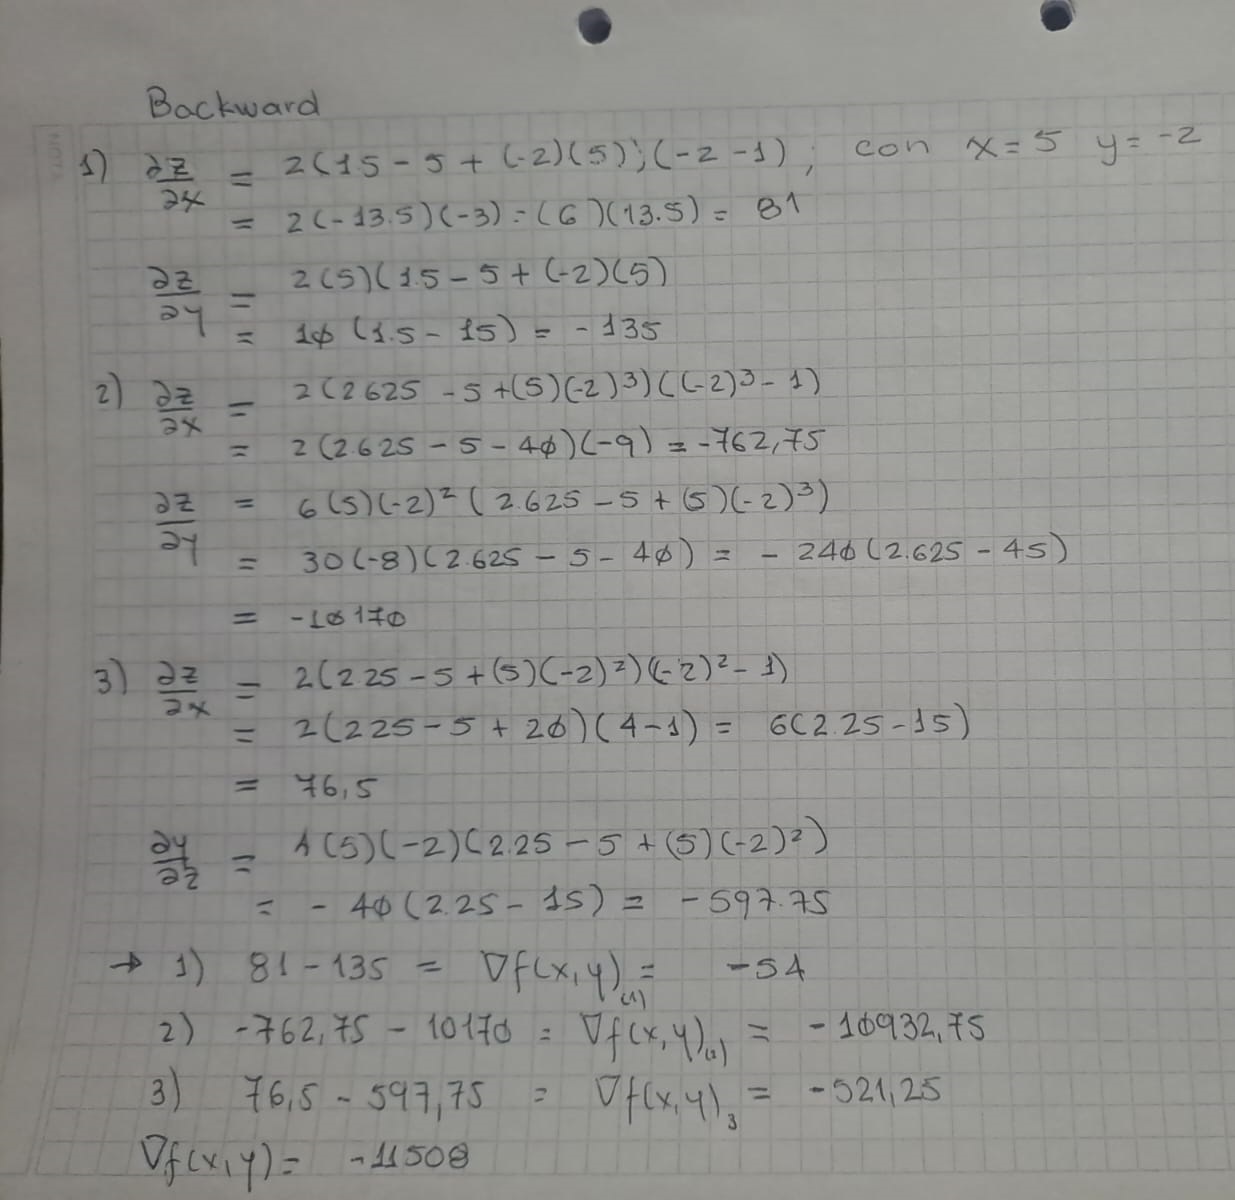 Backward
1) ∂z/∂x = 2(15 - 5 + (-2)(5);(-2 -1) ; con x=5 y=-2
= 2(-13.5)(-3) = (6)(13.5) = 81
∂z/∂y = 2(5)(1.5 - 5 + (-2)(5)
= 10 (1.5 - 15) = -135
2) ∂z/∂x = 2(2625 - 5 +(5)(-2)³)((-2)³ - 1)
= 2(2.625 - 5 - 40)(-9) = -762,75
∂z/∂y = 6(5)(-2)² (2.625 - 5 + (5)(-2)³)
= 30(-8)(2.625 - 5 - 40) = - 240(2.625 - 45)
= -10170
3) ∂z/∂x = 2(225 - 5 + (5)(-2)²)(-2)² - 1)
= 2(225 - 5 + 20)(4-1) = 6(2.25 - 15)
= 76,5
∂y/∂z = 4(5)(-2)(2.25 - 5 + (5)(-2)²)
= - 40(2.25 - 15) = -597.75
→ 1) 81 - 135 = ∇f(x,y)(1) = -54
2) -762,75 - 10170 = ∇f(x,y)(2) = -10932,75
3) 76,5 - 597,75 = ∇f(x,y)3 = -521,25
∇f(x,y) = -11508